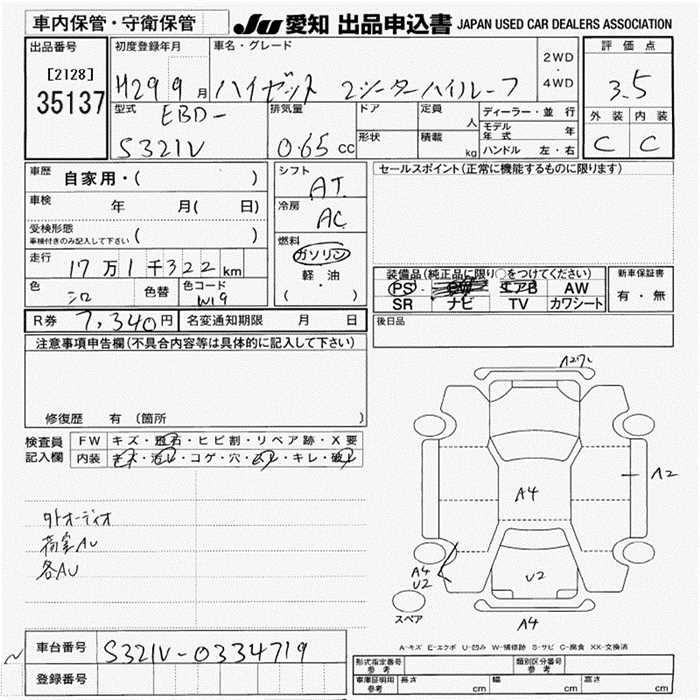 車内保管・守衛保管
JU 愛知 出品申込書 JAPAN USED CAR DEALERS ASSOCIATION
出品番号 初度登録年月 車名・グレード 2WD ・ 4WD 評価点
[2128]
35137
H29 9月 ハイゼット 2シーターハイルーフ 3.5
型式 排気量 ドア 定員 人 ディーラー・並行 外装 内装
EBD-
S321V
0.65 cc
形状 積載 kg
モデル年式 年
ハンドル 左・右
C C
車歴 自家用・( )
シフト AT
セールスポイント(正常に機能するものに限ります)
車検 年 月( 日)
冷房 AC
受検形態 ( )
車検付きのみ記入して下さい
燃料 ガソリン
軽・油
( )
走行 17万1千322km
装備品(純正品に限り○をつけてください)
新車保証書
色 シロ 色替 色コード W19
PS エアB AW
SR ナビ TV カワシート
有・無
R券 7,340円 名変通知期限 月 日
後日品
注意事項申告欄(不具合内容等は具体的に記入して下さい)
修復歴 有 (箇所 )
検査員記入欄
FW キズ・飛石・ヒビ割・リペア跡・X要
内装 キズ・汚レ・コゲ・穴・・キレ・破レ
外オーディオ
荷室AU
各AU
A2
A4
A2
A4
U2
U2
スペア
A4
A-キズ E-エクボ U-凹み W-補修跡 S-サビ C-腐食 XX-交換済
車台番号 S321V-0334719
登録番号
形式指定番号 参考 類別区分番号 参考
車庫証明用 参考 長さ cm 幅 cm 高さ cm